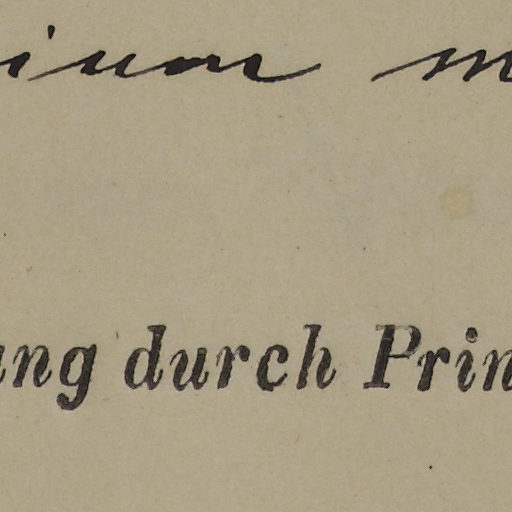 ium m
ung durch Prin